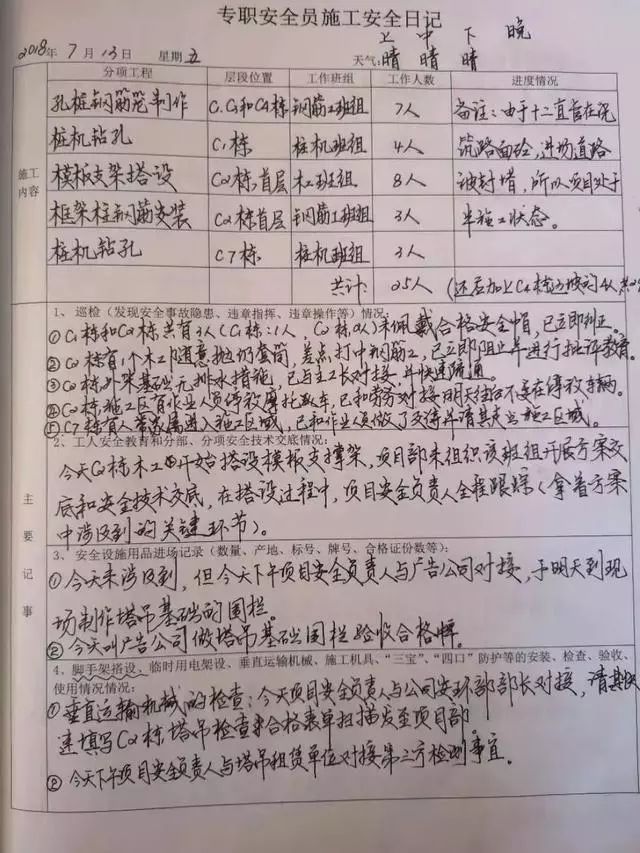 专职安全员施工安全日记
上 中 下 晚
2018年 7月 13日 星期五 天气:晴 晴 晴
分项工程 层段位置 工作班组 工作人数 进度情况
孔桩钢筋笼制作 C5和C4栋 钢筋工班组 7人 备注:由于十二直管在浇
桩机钻孔 C1栋 桩机班组 4人 筑路面砼,进场道路
施工内容 模板支架搭设 C2栋首层 木工班组 8人 被封堵,所以项目处于
框架柱钢筋安装 C2栋首层 钢筋工班组 3人 半施工状态。
桩机钻孔 C7栋 桩机班组 3人
共计: 25人
主要记事
1、巡检(发现安全事故隐患、违章指挥、违章操作等)情况:
① C1栋和C2栋共有3人(C1栋:1人,C2栋2人)未佩戴合格安全帽,已立即纠正。
② C2栋有1个木工随意抛扔套筒,差点打中钢筋工,已立即阻止并进行批评教育。
③ C2栋外架基础无排水措施,已与主工长对接,并快速疏通。
④ C2栋施工区有作业人员停放摩托车,已和劳务对接明天往后不要在停放车辆。
⑤ C7栋有人带家属进入施工区域,已和作业人员做了交待并请其走出施工区域。
2、工人安全教育和分部、分项安全技术交底情况:
今天C2栋木工开始搭设模板支撑架,项目部未组织该班组开展方案交
底和安全技术交底,在搭设过程中,项目安全负责人全程跟踪(拿着方案
中涉及到的关键环节)。
3、安全设施用品进场记录(数量、产地、标号、牌号、合格证份数等):
① 今天未涉及到,但今天下午项目安全负责人与广告公司对接,于明天到现
场制作塔吊基础的围栏。
② 今天叫广告公司做塔吊基础围栏验收合格牌。
4、脚手架搭设、临时用电架设、垂直运输机械、施工机具、“三宝”、“四口”防护等的安装、检查、验收、
使用情况情况:
① 垂直运输机械的检查:今天项目安全负责人与公司安环部部长对接,请其快
速填写C2栋塔吊检查合格表单扫描发至项目部。
② 今天下午项目安全负责人与塔吊租赁单位对接第三方检测事宜。